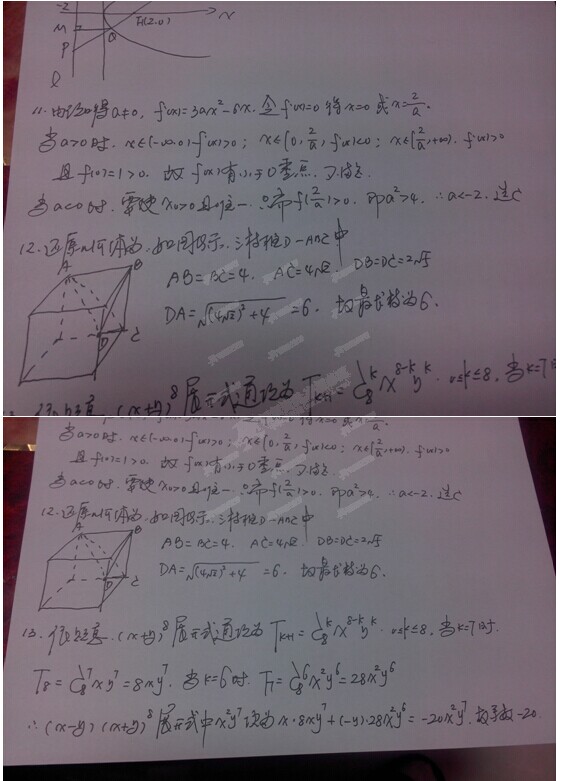 -2
M
Q
F(2,0)
x
P
l
11. 由已知得a≠0, f'(x)=3ax²-6x. 令f'(x)=0得x=0或x=2/a.
当a>0时. x∈(-∞,0),f'(x)>0; x∈(0,2/a),f'(x)<0; x∈(2/a,+∞). f'(x)>0
且f(0)=1>0. 故f(x)有小于0零点.
当a<0时. 需使x₀>0且唯一. 只需f(2/a)>0. 即a²>4. ∴a<-2. 选C
12. 还原几何体为. 如图所示. 三棱锥D-ABC中
A
B
AB=BC=4. AC=4√2. DB=DC=2√5
DA=√(4√2)²+4 =6. 故最长棱为6.
D
C
(x+y)⁸展开式通项为T_{k+1}=C₈ᵏx⁸⁻ᵏyᵏ. 0≤k≤8, 当k=7时
当a>0时. x∈(-∞,0),f'(x)>0; x∈(0,2/a),f'(x)<0; x∈(2/a,+∞). f'(x)>0
且f(0)=1>0. 故f(x)有小于0零点.
当a<0时. 需使x₀>0且唯一. 只需f(2/a)>0. 即a²>4. ∴a<-2. 选C
12. 还原几何体为. 如图所示. 三棱锥D-ABC中
A
B
AB=BC=4. AC=4√2. DB=DC=2√5
DA=√(4√2)²+4 =6. 故最长棱为6.
D
C
13. 依题意. (x+y)⁸展开式通项为T_{k+1}=C₈ᵏx⁸⁻ᵏyᵏ. 0≤k≤8. 当k=7时.
T₈=C₈⁷xy⁷=8xy⁷. 当k=6时. T₇=C₈⁶x²y⁶=28x²y⁶
∴(x-y)(x+y)⁸展开式中x²y⁷项为x·8xy⁷+(-y)·28x²y⁶=-20x²y⁷. 故系数-20.